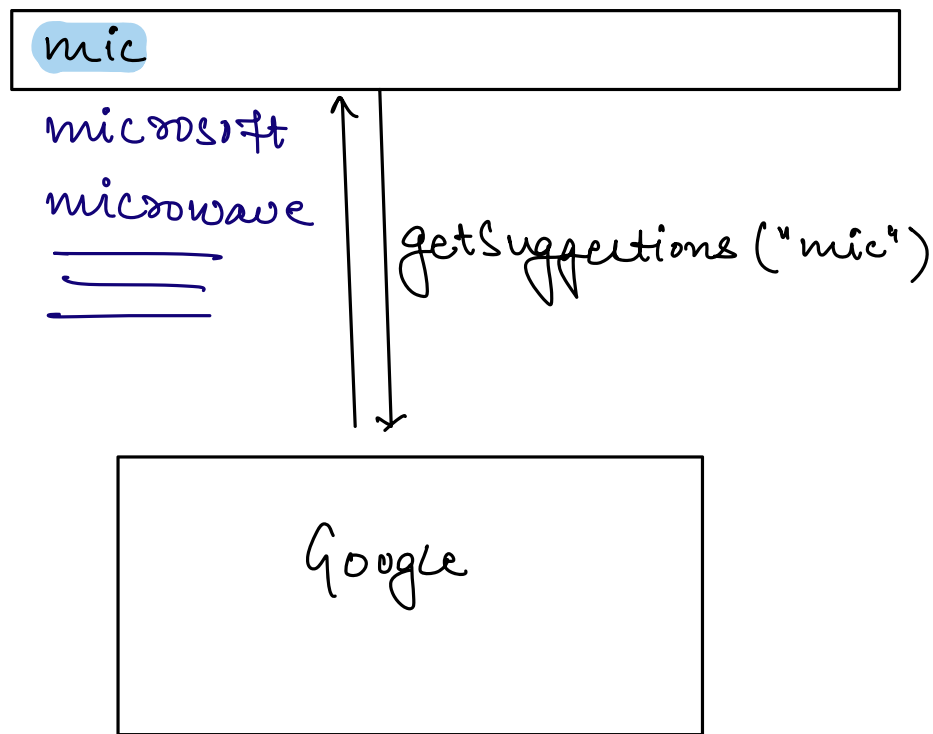 mic
microsoft
microwave
getSuggestions ("mic")
Google